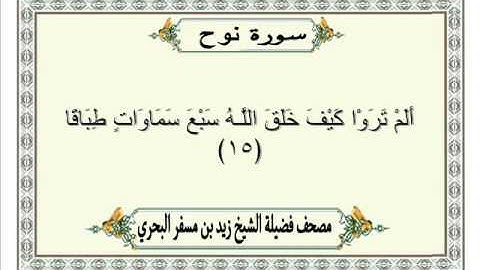 سورة نوح
أَلَمْ تَرَوْا كَيْفَ خَلَقَ اللَّـهُ سَبْعَ سَمَاوَاتٍ طِبَاقًا
(١٥)
مصحف فضيلة الشيخ زيد بن مسفر البحري